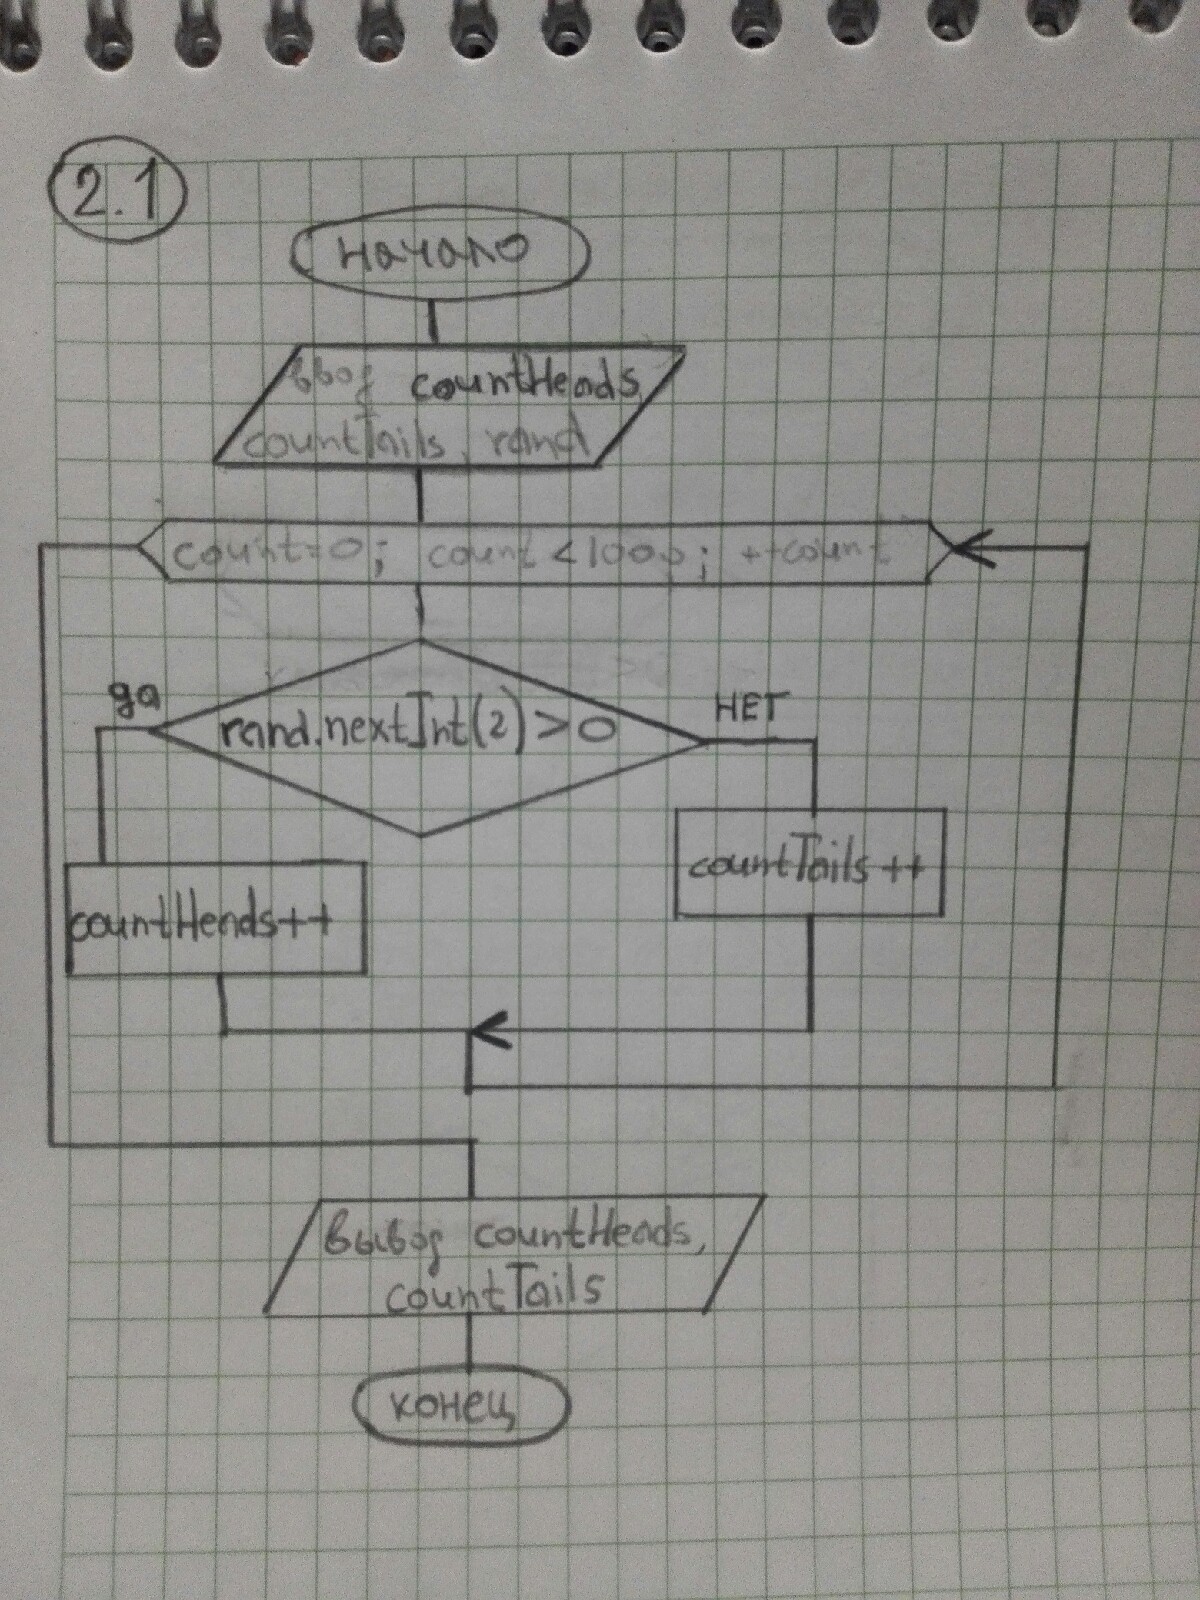 2.1
начало
ввод countHeads,
countTails, rand
count=0; count<1000; ++count
да
rand.nextInt(2)>0
НЕТ
countTails++
countHeads++
вывод countHeads,
countTails
конец